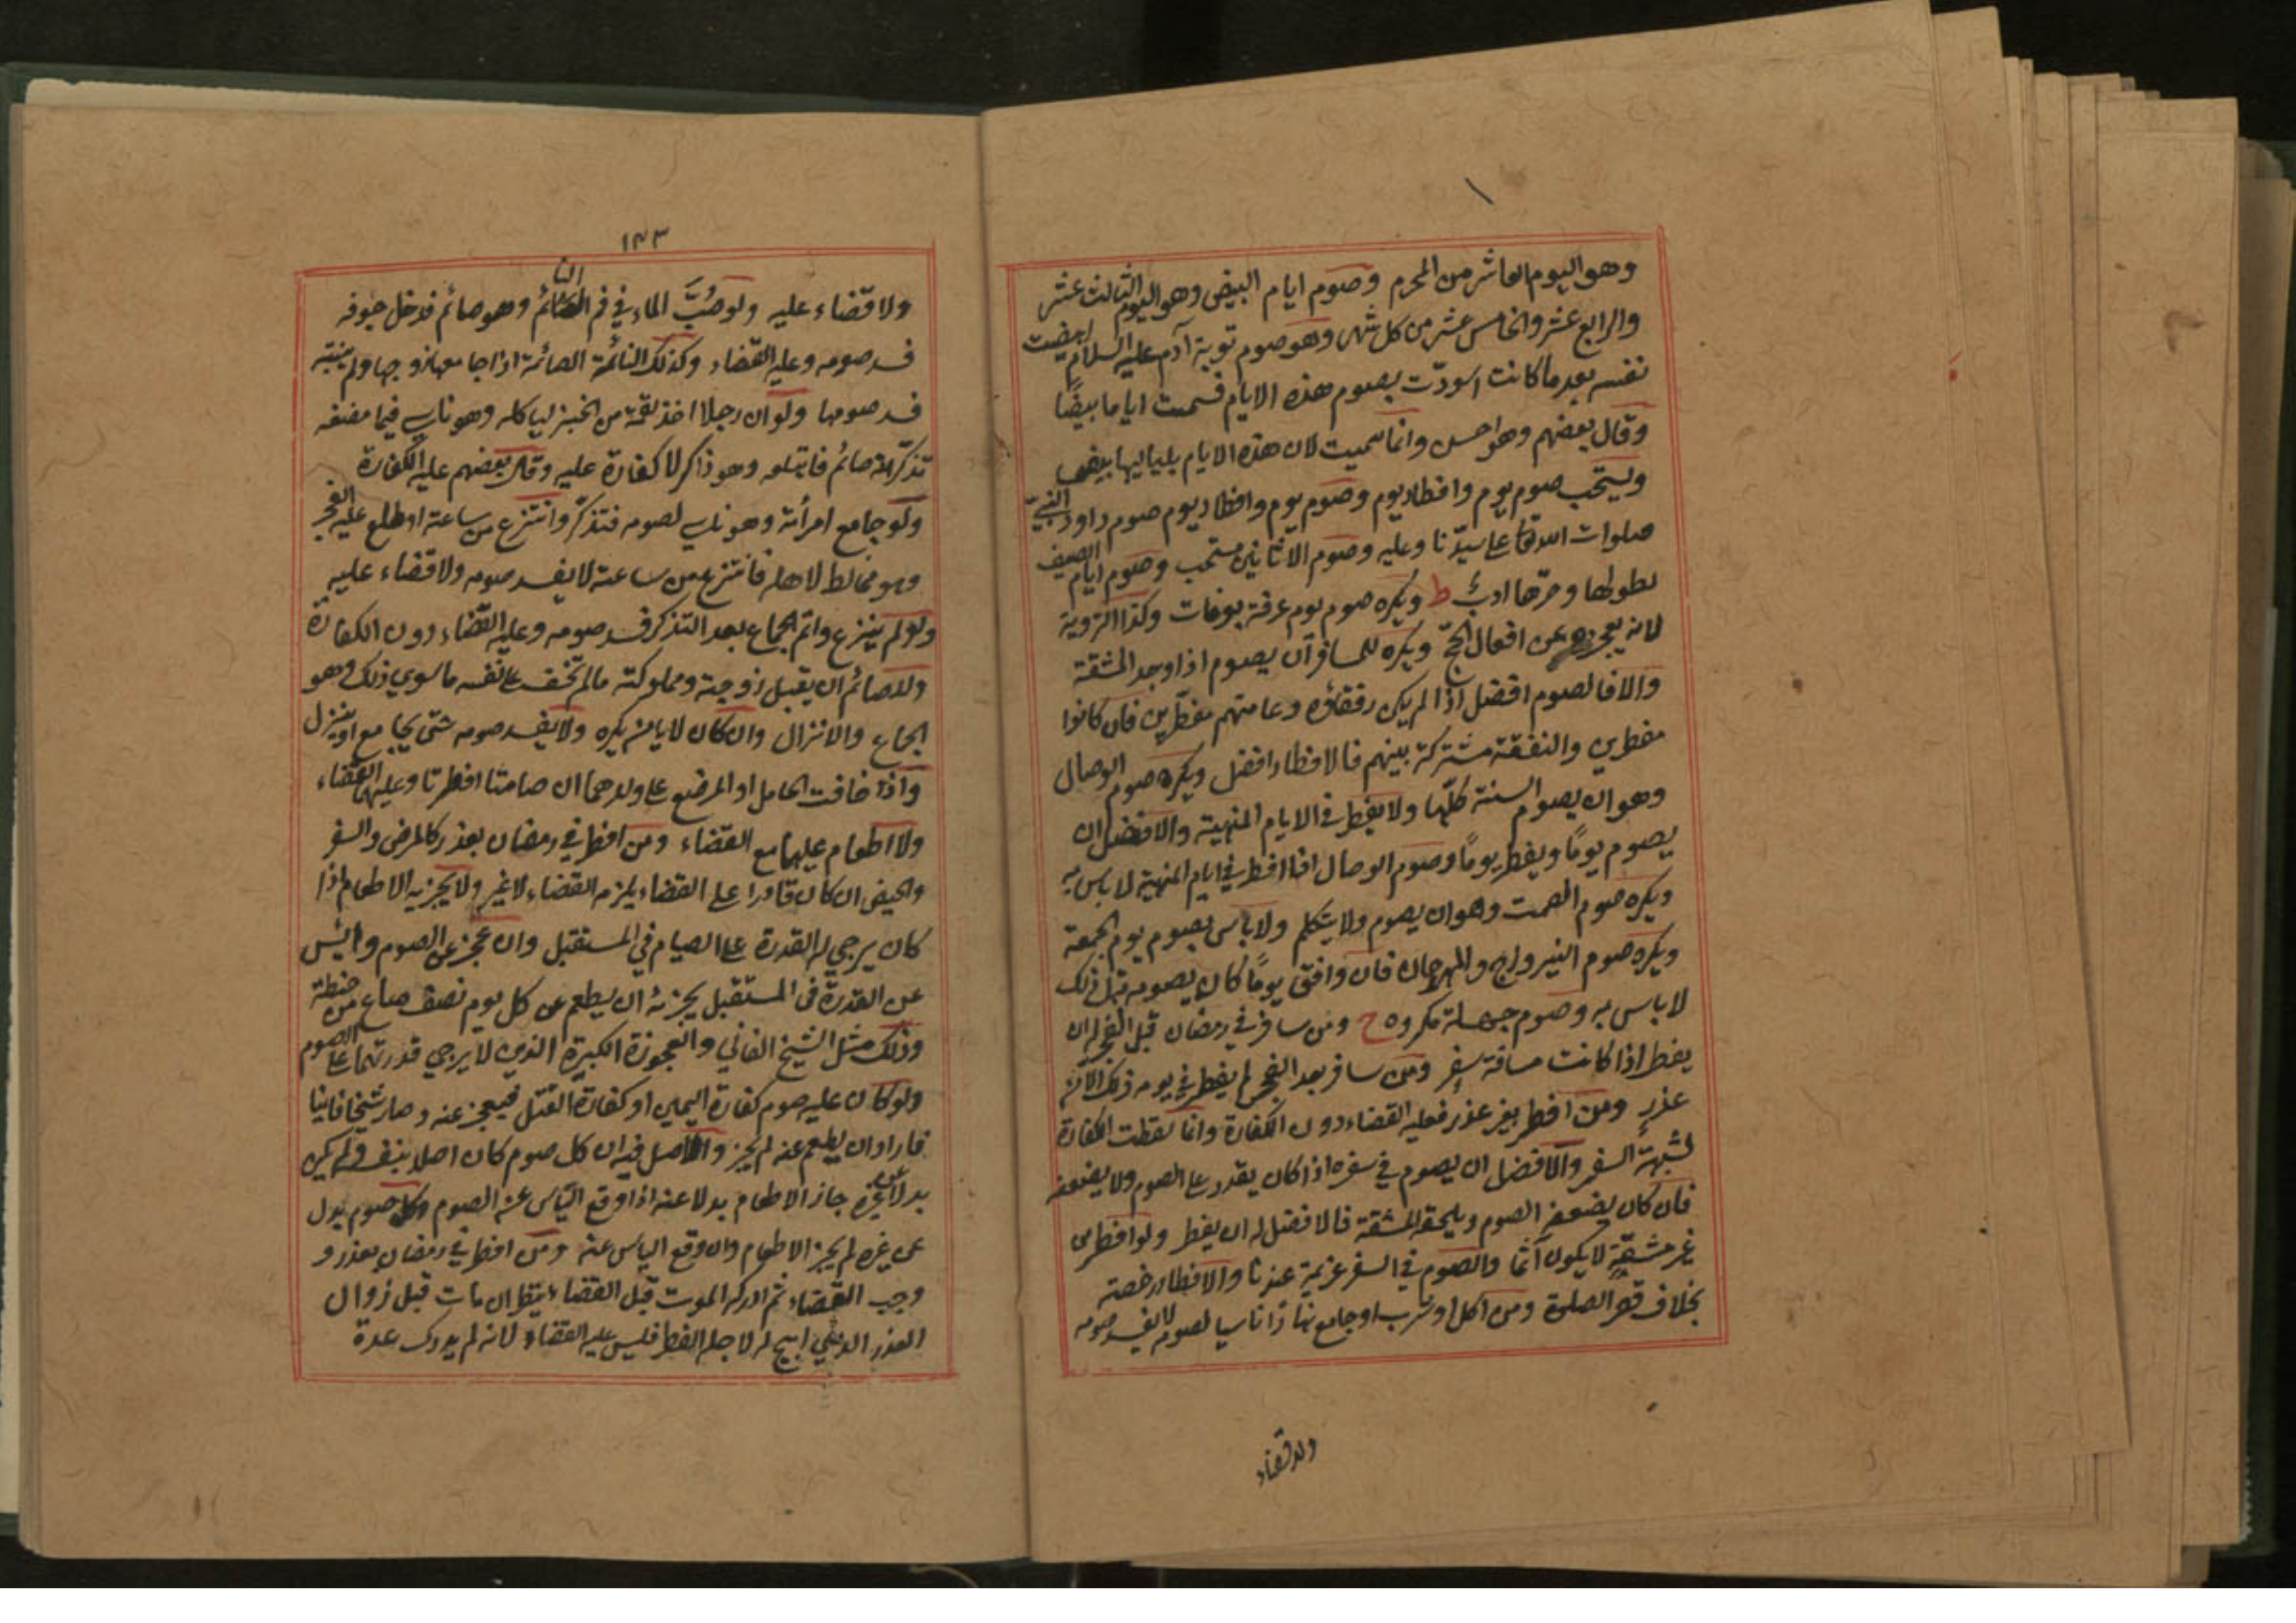 وهو اليوم العاشر من المحرم وصوم ايام البيض وهو اليوم الثالث عشر
والرابع عشر والخامس عشر من كل شهر وهو صوم توبة آدم عليه السلام ابيضت
نفسه بعد ما كانت اسودّت بصوم هذه الايام فسميت اياما بيضًا
وقال بعضهم وهو احسن وانما سميت لان هذه الايام بلياليها بيض
ويستحب صوم يوم وافطار يوم وصوم يوم وافطار يوم صوم داود النبيّ
صلوات الله تعا على سيّدنا وعليه وصوم الاثانين مستحب وصوم ايام الصيف
لطولها وحرّها ادبٌ ط ويكره صوم يوم عرفة بعرفات وكذا التروية
لانه يعجزه عن افعال الحجّ ويكره للمسافر ان يصوم اذا وجد المشقة
والا فالصوم افضل اذا لم يكن رفقاؤه وعامتهم مفطرين فان كانوا
مفطرين والنفقة مشتركة بينهم فالافطار افضل ويكره صوم الوصال
وهو ان يصوم السنة كلّها ولا يفطر في الايام المنهية والافضل ان
يصوم يومًا ويفطر يومًا وصوم الوصال اذا افطر في ايام المنهية لا باس به
ويكره صوم الصمت وهو ان يصوم ولا يتكلم ولا باس بصوم يوم الجمعة
ويكره صوم النيروز والمهرجان فان وافق يومًا كان يصومه قبل ذلك
لا باس به وصوم مكروه ح ومن سافر في رمضان قبل الفجر له ان
يفطر اذا كانت مسافة سفر ومن سافر بعد الفجر لم يفطر في يومه ذلك الا
عذر ومن افطر بغير عذر فعليه القضاء دون الكفارة وانما سقطت الكفارة
لشبهة السفر والافضل ان يصوم في سفره اذا كان يقدر على الصوم ولا يضعفه
فان كان يضعفه الصوم ويلحقه المشقة فالافضل له ان يفطر ولو افطر من
غير مشقّة لا يكون آثما والصوم في السفر عزيمة عندنا والافطار رخصة
بخلاف قصر الصلوة ومن اكل او شرب او جامع نهارًا ناسيا لصومه لا يفسد صومه
ولا قضاء
١٤٣
ولا قضاء عليه ولو صُبَّ الماء في فم النائم وهو صائم فدخل جوفه
فسد صومه وعليه القضاء وكذلك النائمة الصائمة اذا جامعها زوجها ولم ينتبه
فسد صومها ولو ان رجلا اخذ لقمة من الخبز لياكله وهو ناس فلما مضغه
تذكر انه صائم فابتلعه وهو ذاكر لا كفارة عليه وقال بعضهم عليه الكفارة
ولو جامع امرأته وهو ناس لصومه فتذكر وانتزع من ساعته او طلع عليه الفجر
وهو مخالط لاهله فانتزع من ساعته لا يفسد صومه ولا قضاء عليه
ولو لم ينزع واتم الجماع بعد التذكر فسد صومه وعليه القضاء دون الكفارة
وللصائم ان يقبل زوجته ومملوكته ما لم تخف على نفسه ما سوي ذلك وهو
الجماع والانزال وان كان لا يامن يكره ولا يفسد صومه حتى يجامع او ينزل
واذا خافت الحامل او المرضع على ولدهما ان صامتا افطرتا وعليهما القضاء
ولا اطعام عليهما مع القضاء ومن افطر في رمضان بعذر كالمرض والسفر
والحيض ان كان قادرا على القضاء يلزمه القضاء لا غير ولا يجزيه الاطعام اذا
كان يرجي له القدرة على الصيام في المستقبل وان عجز عن الصوم وايس
عن القدرة في المستقبل يجزئه ان يطعم عن كل يوم نصف صاع من حنطة
وذلك مثل الشيخ الفاني والعجوزة الكبيرة الذين لا يرجي قدرتهما على الصوم
ولو كان عليه صوم كفارة اليمين او كفارة القتل فيعجز عنه وصار شيخا فانيا
فاراد ان يطعم عنه لم يجز والاصل فيه ان كل صوم كان اصلا بنفسه ولم يكن
بدلا عن غيره جاز الاطعام بدلا عنه اذا وقع الياس عنه الصوم وكل صوم بدل
عن غيره لم يجز الاطعام وان وقع الياس عنه ومن افطر في رمضان بعذر و
وجب القضاء ثم ادركه الموت قبل القضاء ينظر ان مات قبل زوال
العذر الذي ابيح له لاجله الفطر فليس عليه القضاء لانه لم يدرك عدة